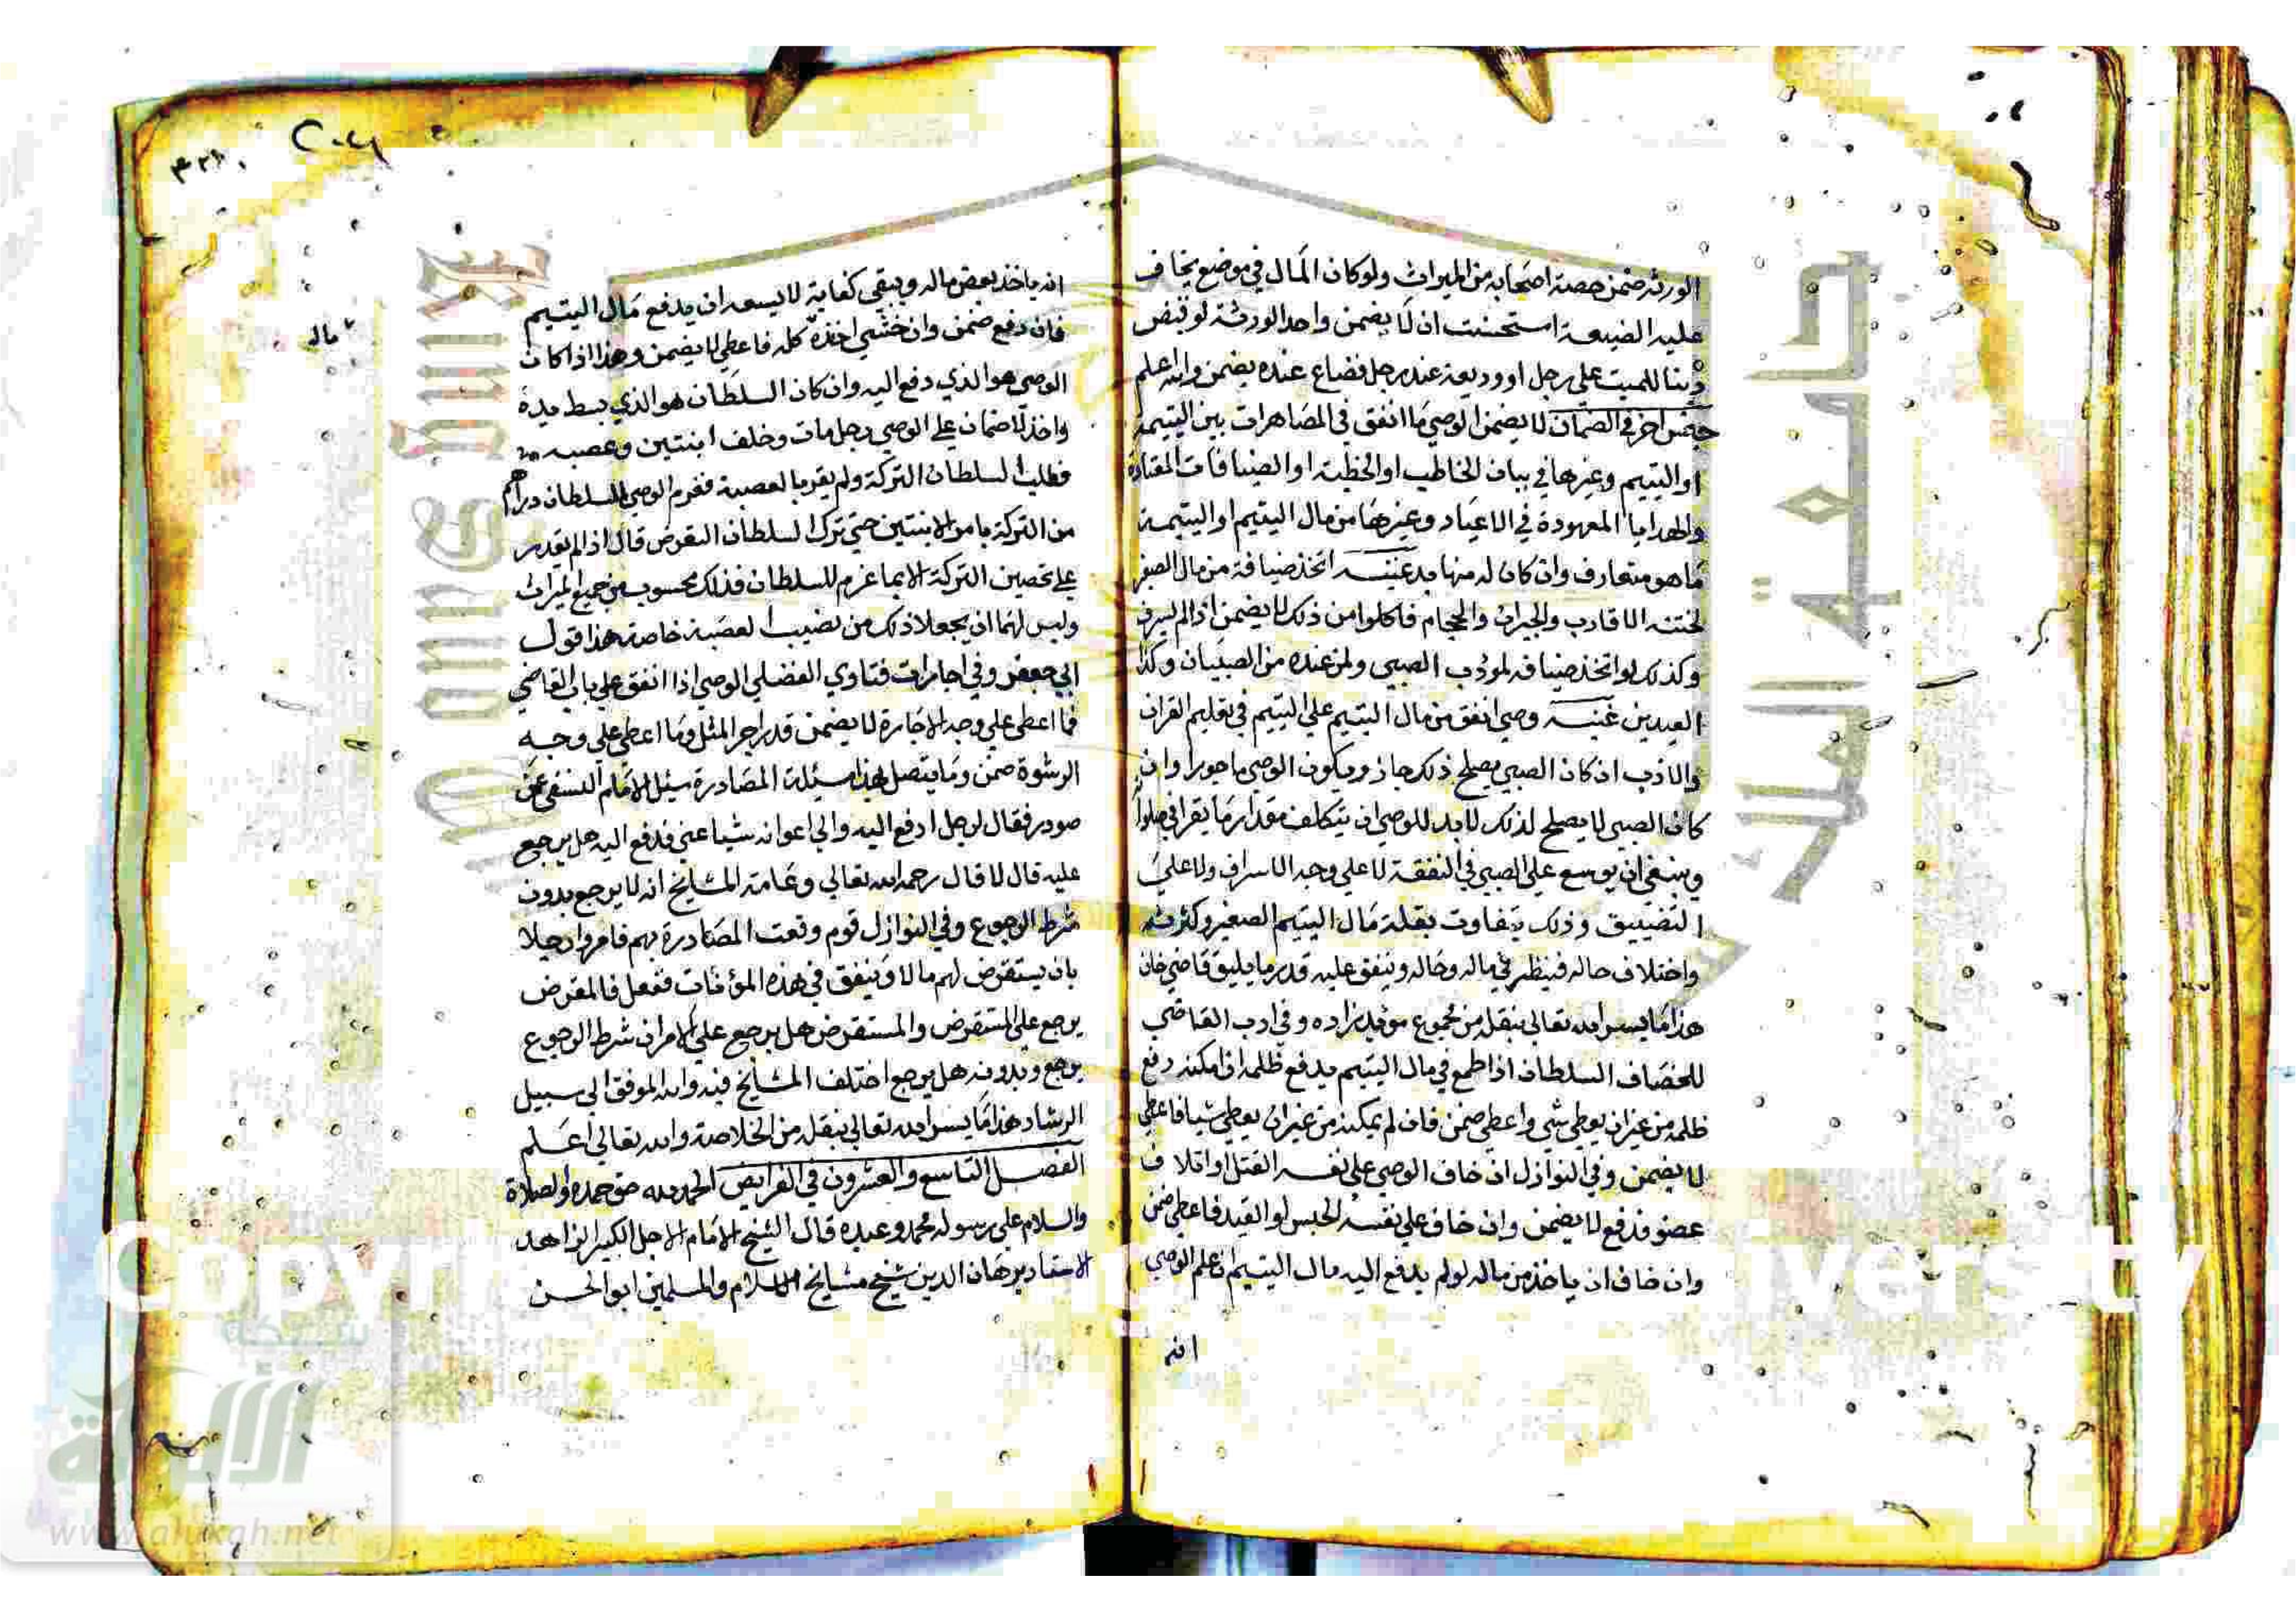 الورثة ضمن حصة اصحابه من الميراث ولو كان المال في موضع يخاف
عليه الضيعة استحسنت ان لا يضمن واحد الورثة لو قبض
دينا للميت على رجل او وديعة عند رجل فضاع عنده يضمن والله اعلم
جنس اخر في الضمان لا يضمن الوصي ما انفق في المصاهرات بين اليتيمة
او اليتيم وغيرها في بيان الخاطب او الخطبة او الضيافات المعتادة
والهدايا المعهودة في الاعياد وغيرها من مال اليتيم او اليتيمة
ما هو متعارف وان كان له منها بد غنية اتخذ ضيافة من مال الصغير
لختنه الاقارب والجيران والحجام فاكلوا من ذلك لا يضمن اذا لم يسرف
وكذلك لو اتخذ ضيافة لمؤدب الصبي ولمن عنده من الصبيان وكذا
العيدين غنية وصي انفق من مال اليتيم على اليتيم في تعليم القران
والادب ان كان الصبي يصلح ذلك جاز ويكون الوصي ماجورا وان
كان الصبي لا يصلح لذلك لا بد للوصي ان يتكلف مقدار ما يقرا في صلواته
وينبغي ان يوسع على الصبي في النفقة لا على وجه الاسراف ولا على
التضييق وذلك يتفاوت بقلة مال اليتيم الصغير وكثرته
واختلاف حاله فينظر في ماله وحاله وينفق عليه قدر ما يليق قاضي خان
هذا ما يسر الله تعالى بنقله من مجموع مؤيد زاده وفي ادب القاضي
للخصاف السلطان اذا طمع في مال اليتيم يدفع ظلمه ان امكنه دفع
ظلمه من غير ان يعطي شي واعطي ضمن فان لم يمكنه من غير ان يعطي شيا فاعطي
لا يضمن وفي النوازل ان خاف الوصي على نفسه القتل او اتلاف
عضو فدفع لا يضمن وان خاف على نفسه الحبس او القيد فاعطي ضمن
وان خاف ان ياخذ من ماله لو لم يدفع اليه مال اليتيم ان علم الوصي
انه
انه ياخذ بعض ماله ويبقي كفاية لا يسعه ان يدفع مال اليتيم
فان دفع ضمن وان خشي اخذه كله فاعطي لا يضمن وهذا اذا كان
ماله
الوصي هو الذي دفع اليه وان كان السلطان هو الذي بسط يده
واخذ لا ضمان على الوصي رجل مات وخلف ابنتين وعصبة
فطلب السلطان التركة ولم يقر بالعصبة فغرم الوصي للسلطان دراهم
من التركة بامر الابنتين حتى ترك السلطان التعرض قال اذا لم يقدر
على تحصين التركة الا بما غرم للسلطان فذلك محسوب من جميع الميراث
وليس لهما ان يجعلا ذلك من نصيب العصبة خاصة هذا قول
ابي جعفر وفي اجارات فتاوي الفضلي الوصي اذا انفق على باب القاضي
فما اعطى على وجه الاجارة لا يضمن قدر اجر المثل وما اعطي على وجه
الرشوة ضمن وما يتصل بهذا مسئلة المصادرة سئل الامام النسفي عمن
صودر فقال لرجل ادفع اليه والي اعوانه شيا عني فدفع اليه هل يرجع
عليه قال لا قال رحمه الله تعالي وعامة المشايخ انه لا يرجع بدون
شرط الرجوع وفي النوازل قوم وقعت المصادرة بهم فامروا رجلا
بان يستقرض لهم مالا وينفق في هذه المؤنات ففعل فالمقرض
يرجع على المستقرض والمستقرض هل يرجع على الامر ان شرط الرجوع
يرجع وبدونه هل يرجع اختلف المشايخ فيه والله الموفق الى سبيل
الرشاد هذا ما يسر الله تعالي بنقله من الخلاصة والله تعالي اعلم
الفصل التاسع والعشرون في الفرايض الحمد لله حق حمده والصلاة
والسلام على رسوله محمد وعبده قال الشيخ الامام الاجل الكبير الزاهد
الاستاد برهان الدين شيخ مشايخ الاسلام والمسلمين ابو الحسن
شبكة
الألوكة
www.alukah.net